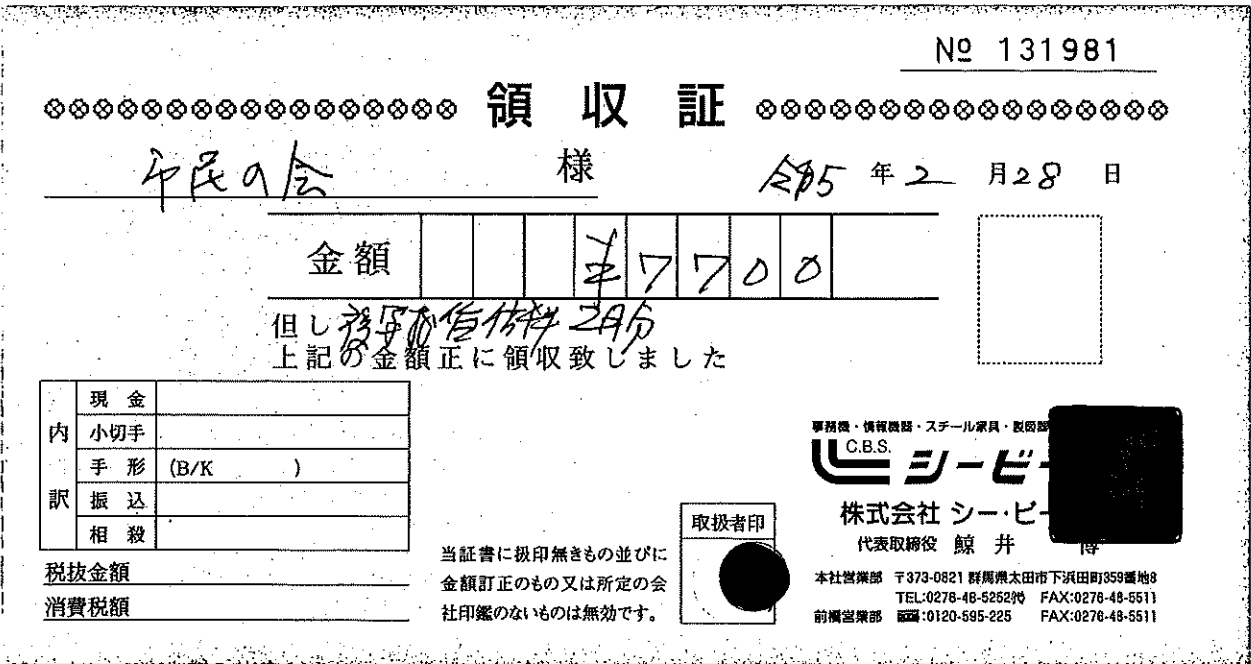 № 131981
領収証
市民の会 様
令和5年2月28日
金額 ¥7700
但し 複写機借代料 2月分
上記の金額正に領収致しました
内訳
現金
小切手
手形 (B/K )
振込
相殺
税抜金額
消費税額
当証書に扱印無きもの並びに
金額訂正のもの又は所定の会
社印鑑のないものは無効です。
取扱者印
事務機・情報機器・スチール家具・製図器
C.B.S. シービー
株式会社 シー・ビー
代表取締役 鯨井 博
本社営業部 〒373-0821 群馬県太田市下浜田町359番地8
TEL:0276-46-5252㈹ FAX:0276-48-5511
前橋営業部 :0120-595-225 FAX:0276-48-5511